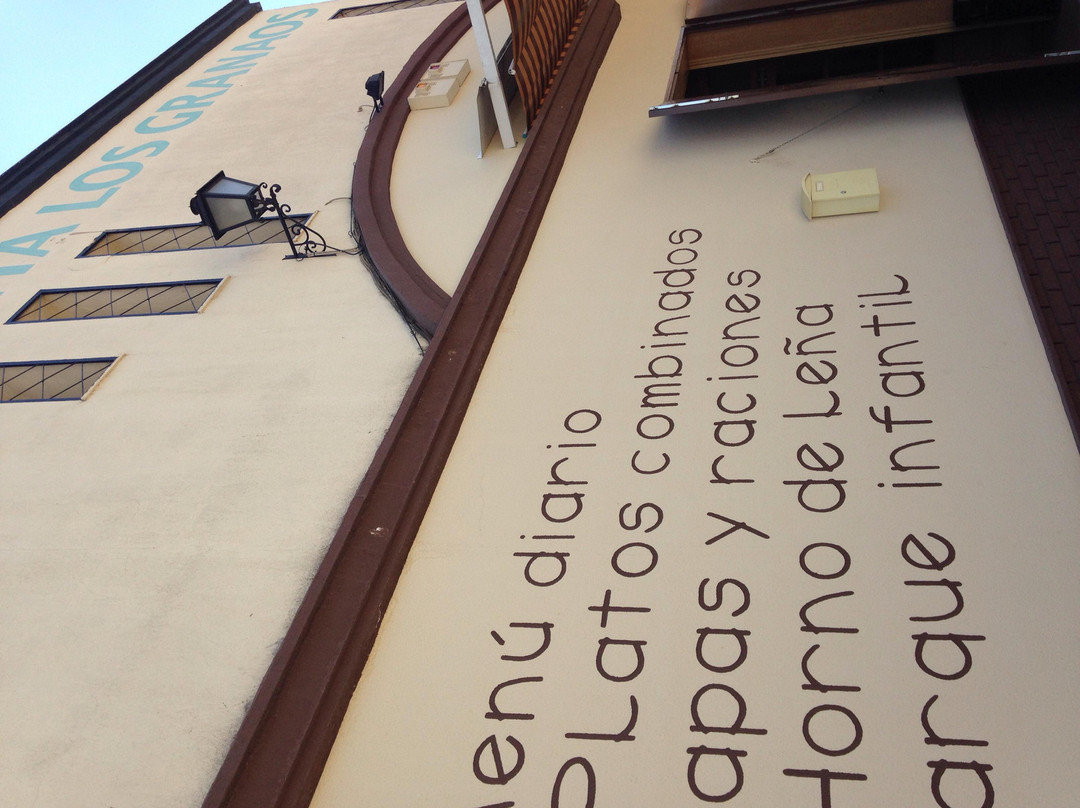 TA LOS GRANAOS
enú diario
Platos combinados
apas y raciones
Horno de Leña
arque infantil